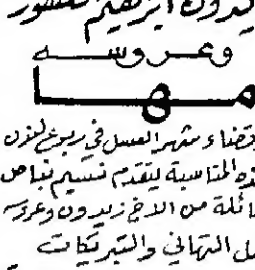 زيدون ابرهيم منصور
وعروسه
مها
وقضاء شهر العسل في ربوع لندن
ذه المناسبة يتقدم نسيم نباص
ائلة من الاخ زيدون وعروسه
ل التهاني والتبريكات